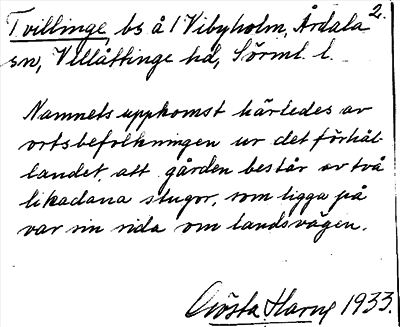 Tvillinge, bs å / Vibyholm, Årdala 2.
sn, Villåttinge hd, Sörml. l.
Namnets uppkomst härledes av
ortsbefolkningen ur det förhål-
landet, att gården består av två
likadana stugor, som ligga på
var sin sida om landsvägen.
Gösta Harng 1933.